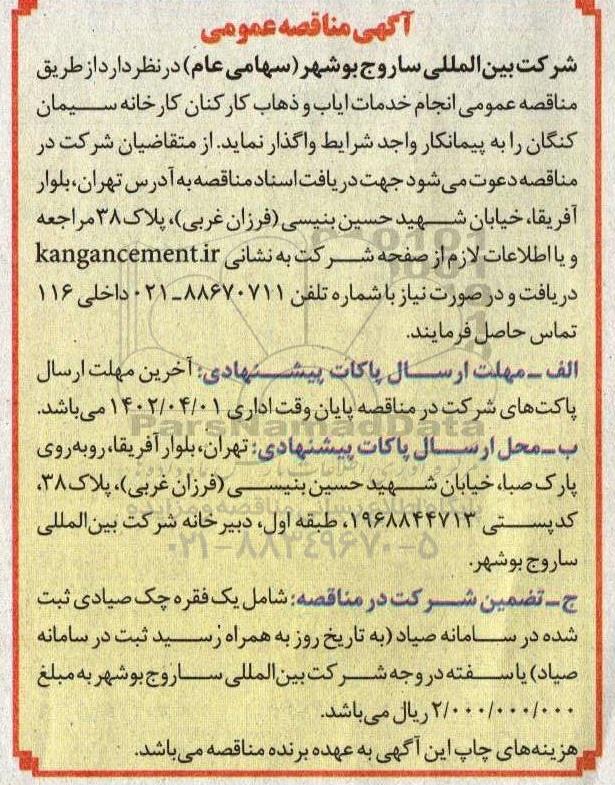 آگهی مناقصه عمومی
شرکت بین‌المللی ساروج بوشهر (سهامی عام) در نظر دارد از طریق
مناقصه عمومی انجام خدمات ایاب و ذهاب کارکنان کارخانه سیمان
کنگان را به پیمانکار واجد شرایط واگذار نماید. از متقاضیان شرکت در
مناقصه دعوت می‌شود جهت دریافت اسناد مناقصه به آدرس تهران، بلوار
آفریقا، خیابان شهید حسین بنیسی (فرزان غربی)، پلاک ۳۸ مراجعه
و یا اطلاعات لازم از صفحه شرکت به نشانی kangancement.ir
دریافت و در صورت نیاز با شماره تلفن ۸۸۶۷۰۷۱۱-۰۲۱ داخلی ۱۱۶
تماس حاصل فرمایند.
الف - مهلت ارسال پاکات پیشنهادی: آخرین مهلت ارسال
پاکت‌های شرکت در مناقصه پایان وقت اداری ۱۴۰۲/۰۴/۰۱ می‌باشد.
ParsNamadData
ب - محل ارسال پاکات پیشنهادی: تهران، بلوار آفریقا، روبه‌روی
پارک صبا، خیابان شهید حسین بنیسی (فرزان غربی)، پلاک ۳۸،
کدپستی ۱۹۶۸۸۴۴۷۱۳، طبقه اول، دبیرخانه شرکت بین‌المللی
۰۲۱-۸۸۳۴۹۶۷۰-۵
ساروج بوشهر.
ج - تضمین شرکت در مناقصه: شامل یک فقره چک صیادی ثبت
شده در سامانه صیاد (به تاریخ روز به همراه رسید ثبت در سامانه
صیاد) یا سفته در وجه شرکت بین‌المللی ساروج بوشهر به مبلغ
۲/۰۰۰/۰۰۰/۰۰۰ ریال می‌باشد.
هزینه‌های چاپ این آگهی به عهده برنده مناقصه می‌باشد.